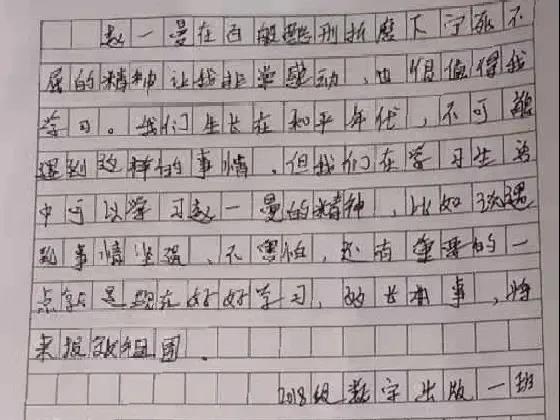 赵一曼在百般酷刑折磨下宁死不
屈的精神让我非常感动，也很值得我
学习。我们生长在和平年代，不可能
遇到这样的事情，但我们在学习生活
中可以学习赵一曼的精神，比如说遇
到事情坚强、不害怕，还有重要的一
点就是现在好好学习，的长本事，将
来报效祖国。
2018级数字出版一班